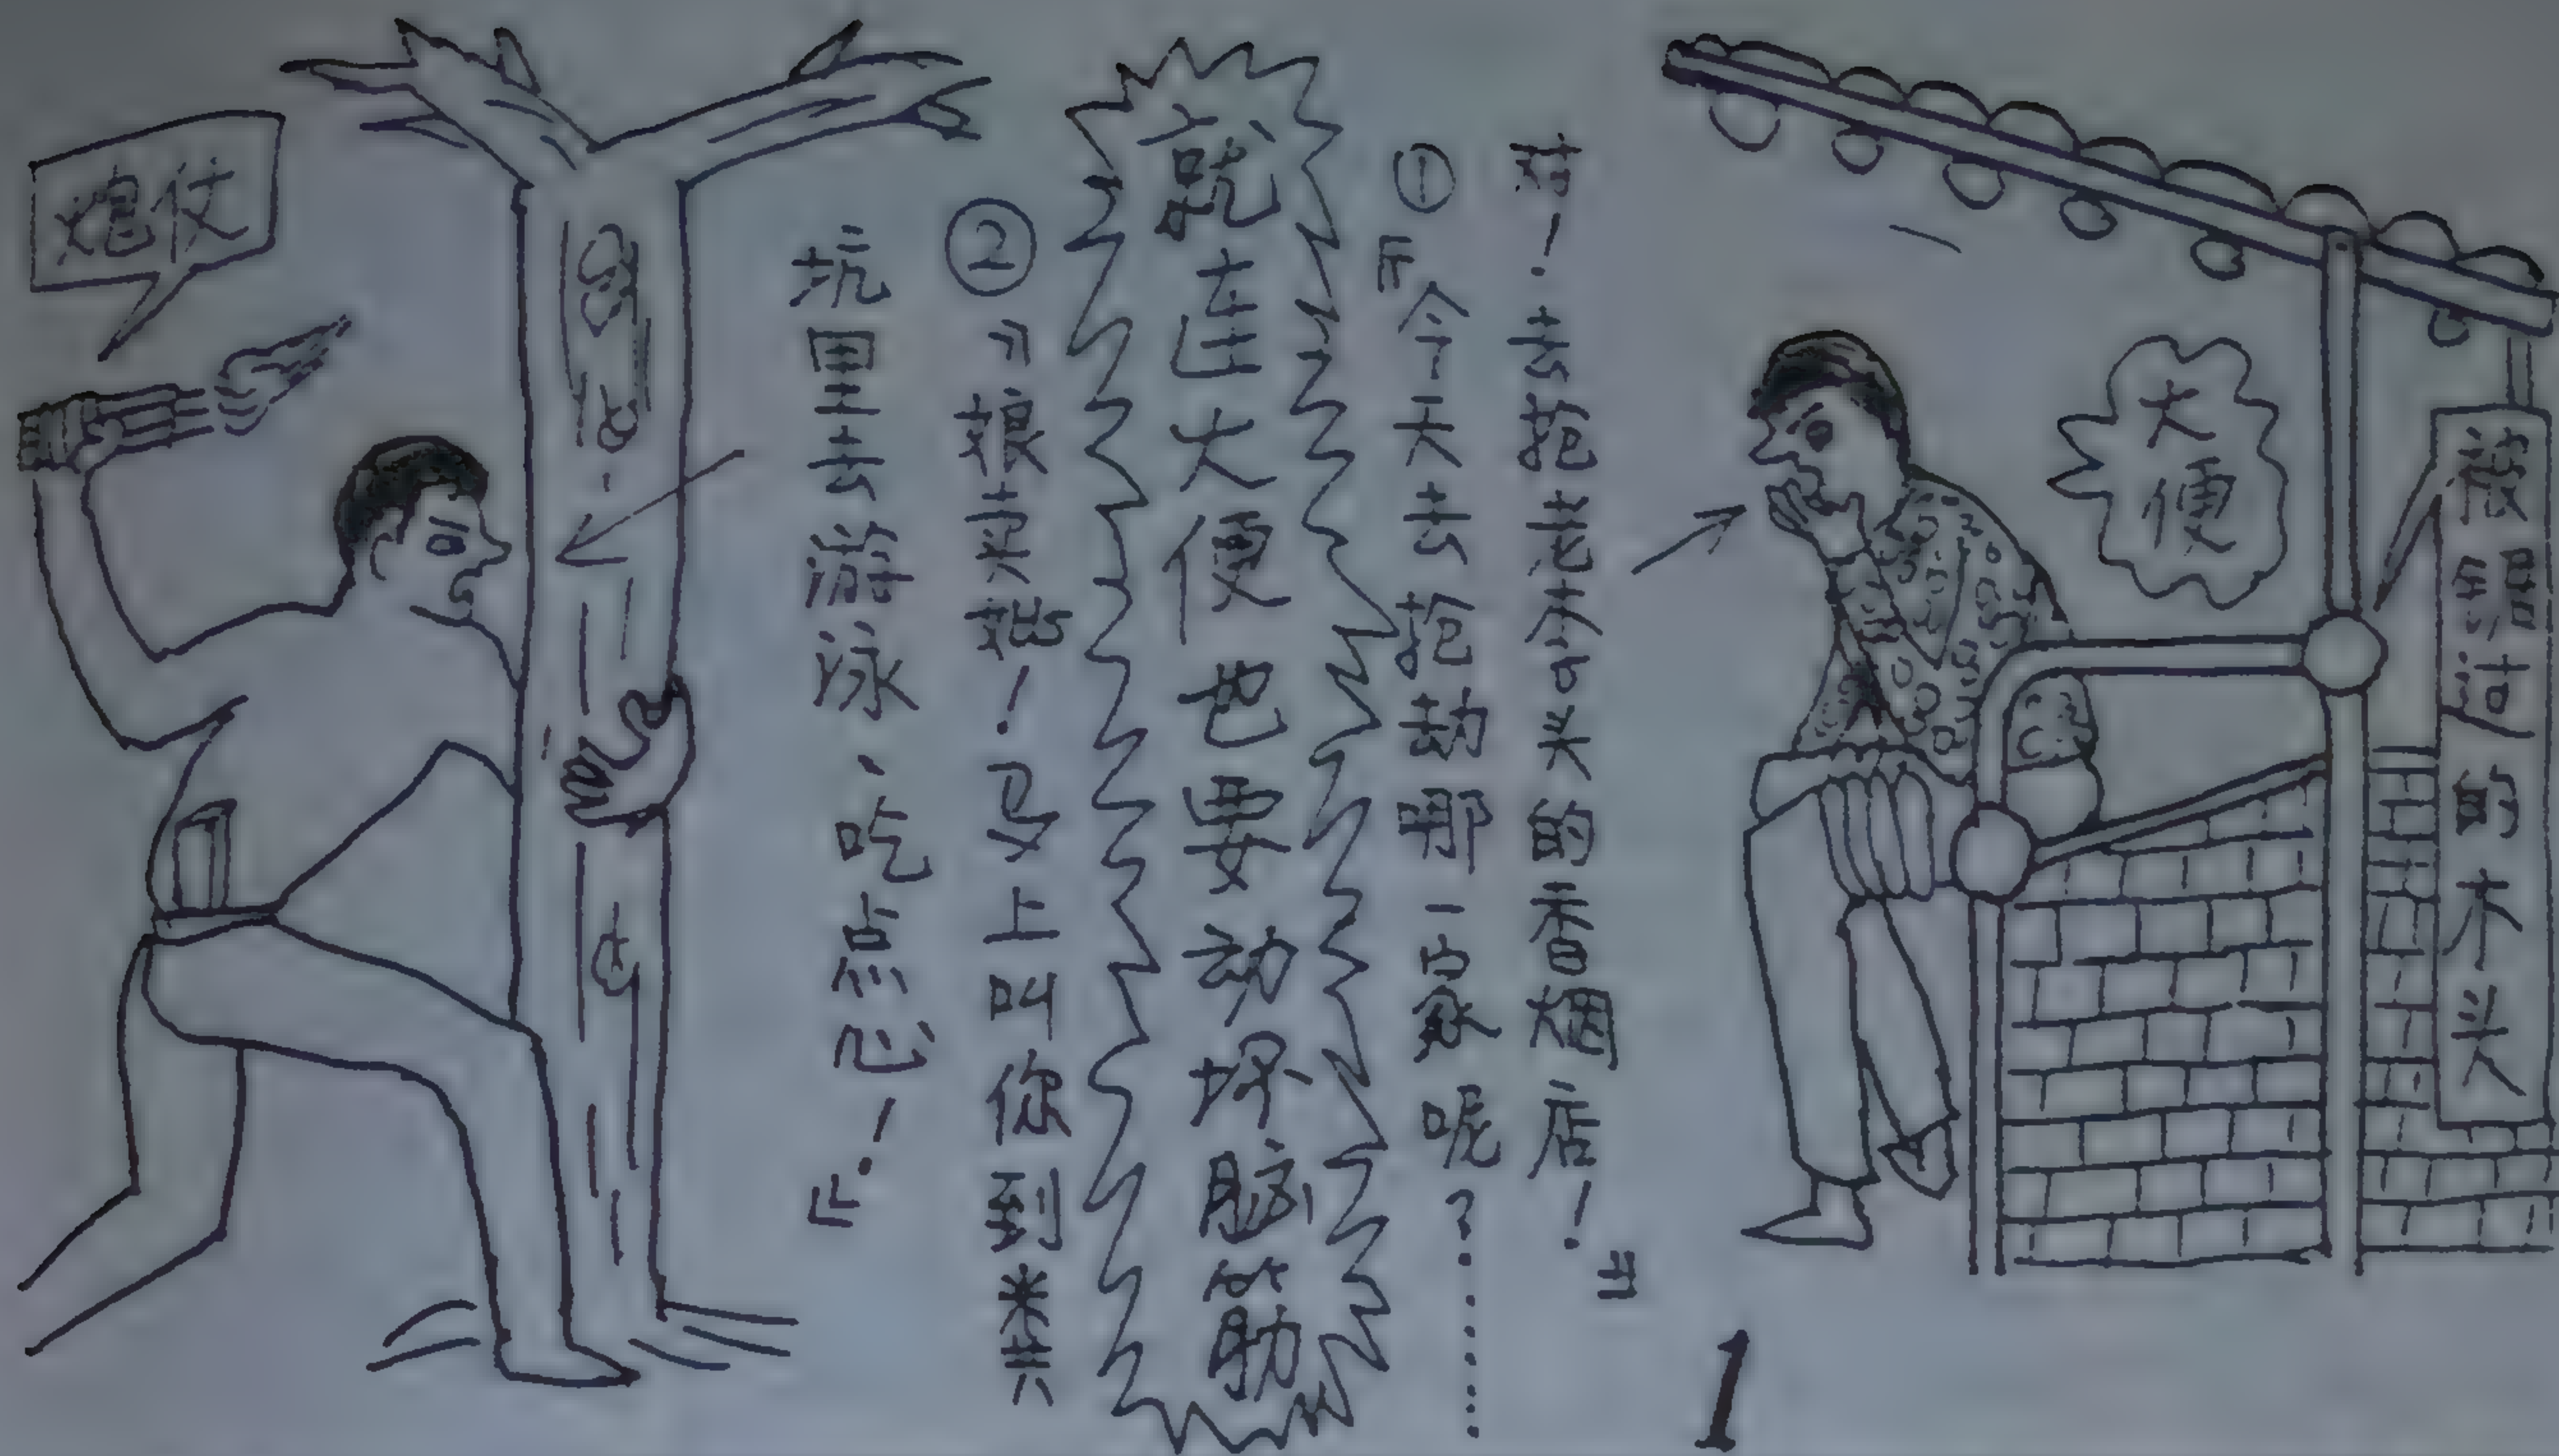 大便
的木头
①『今天去抢劫哪一家呢?……
对!去抢老李头的香烟店!』
就连大便也要动坏脑筋
②『娘卖!马上叫你到粪
坑里去游泳、吃点心!』
炮仗
1